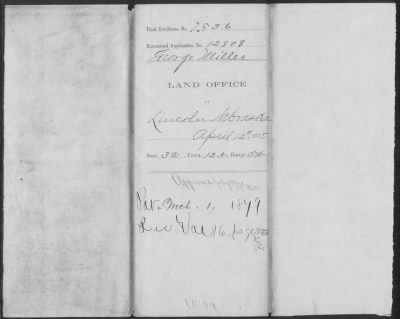 Final Certificate No. 2536
Homestead Application No. 12808
George Miller
LAND OFFICE
Lincoln Nebraska
April 12th 187
Sect. 32, Town. 12 N, Range
Pat. Mch. 1, 1879
Rec Vol 16, page